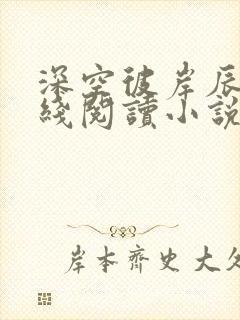 深空彼岸辰
綫閱讀小說
岸本齊史大久